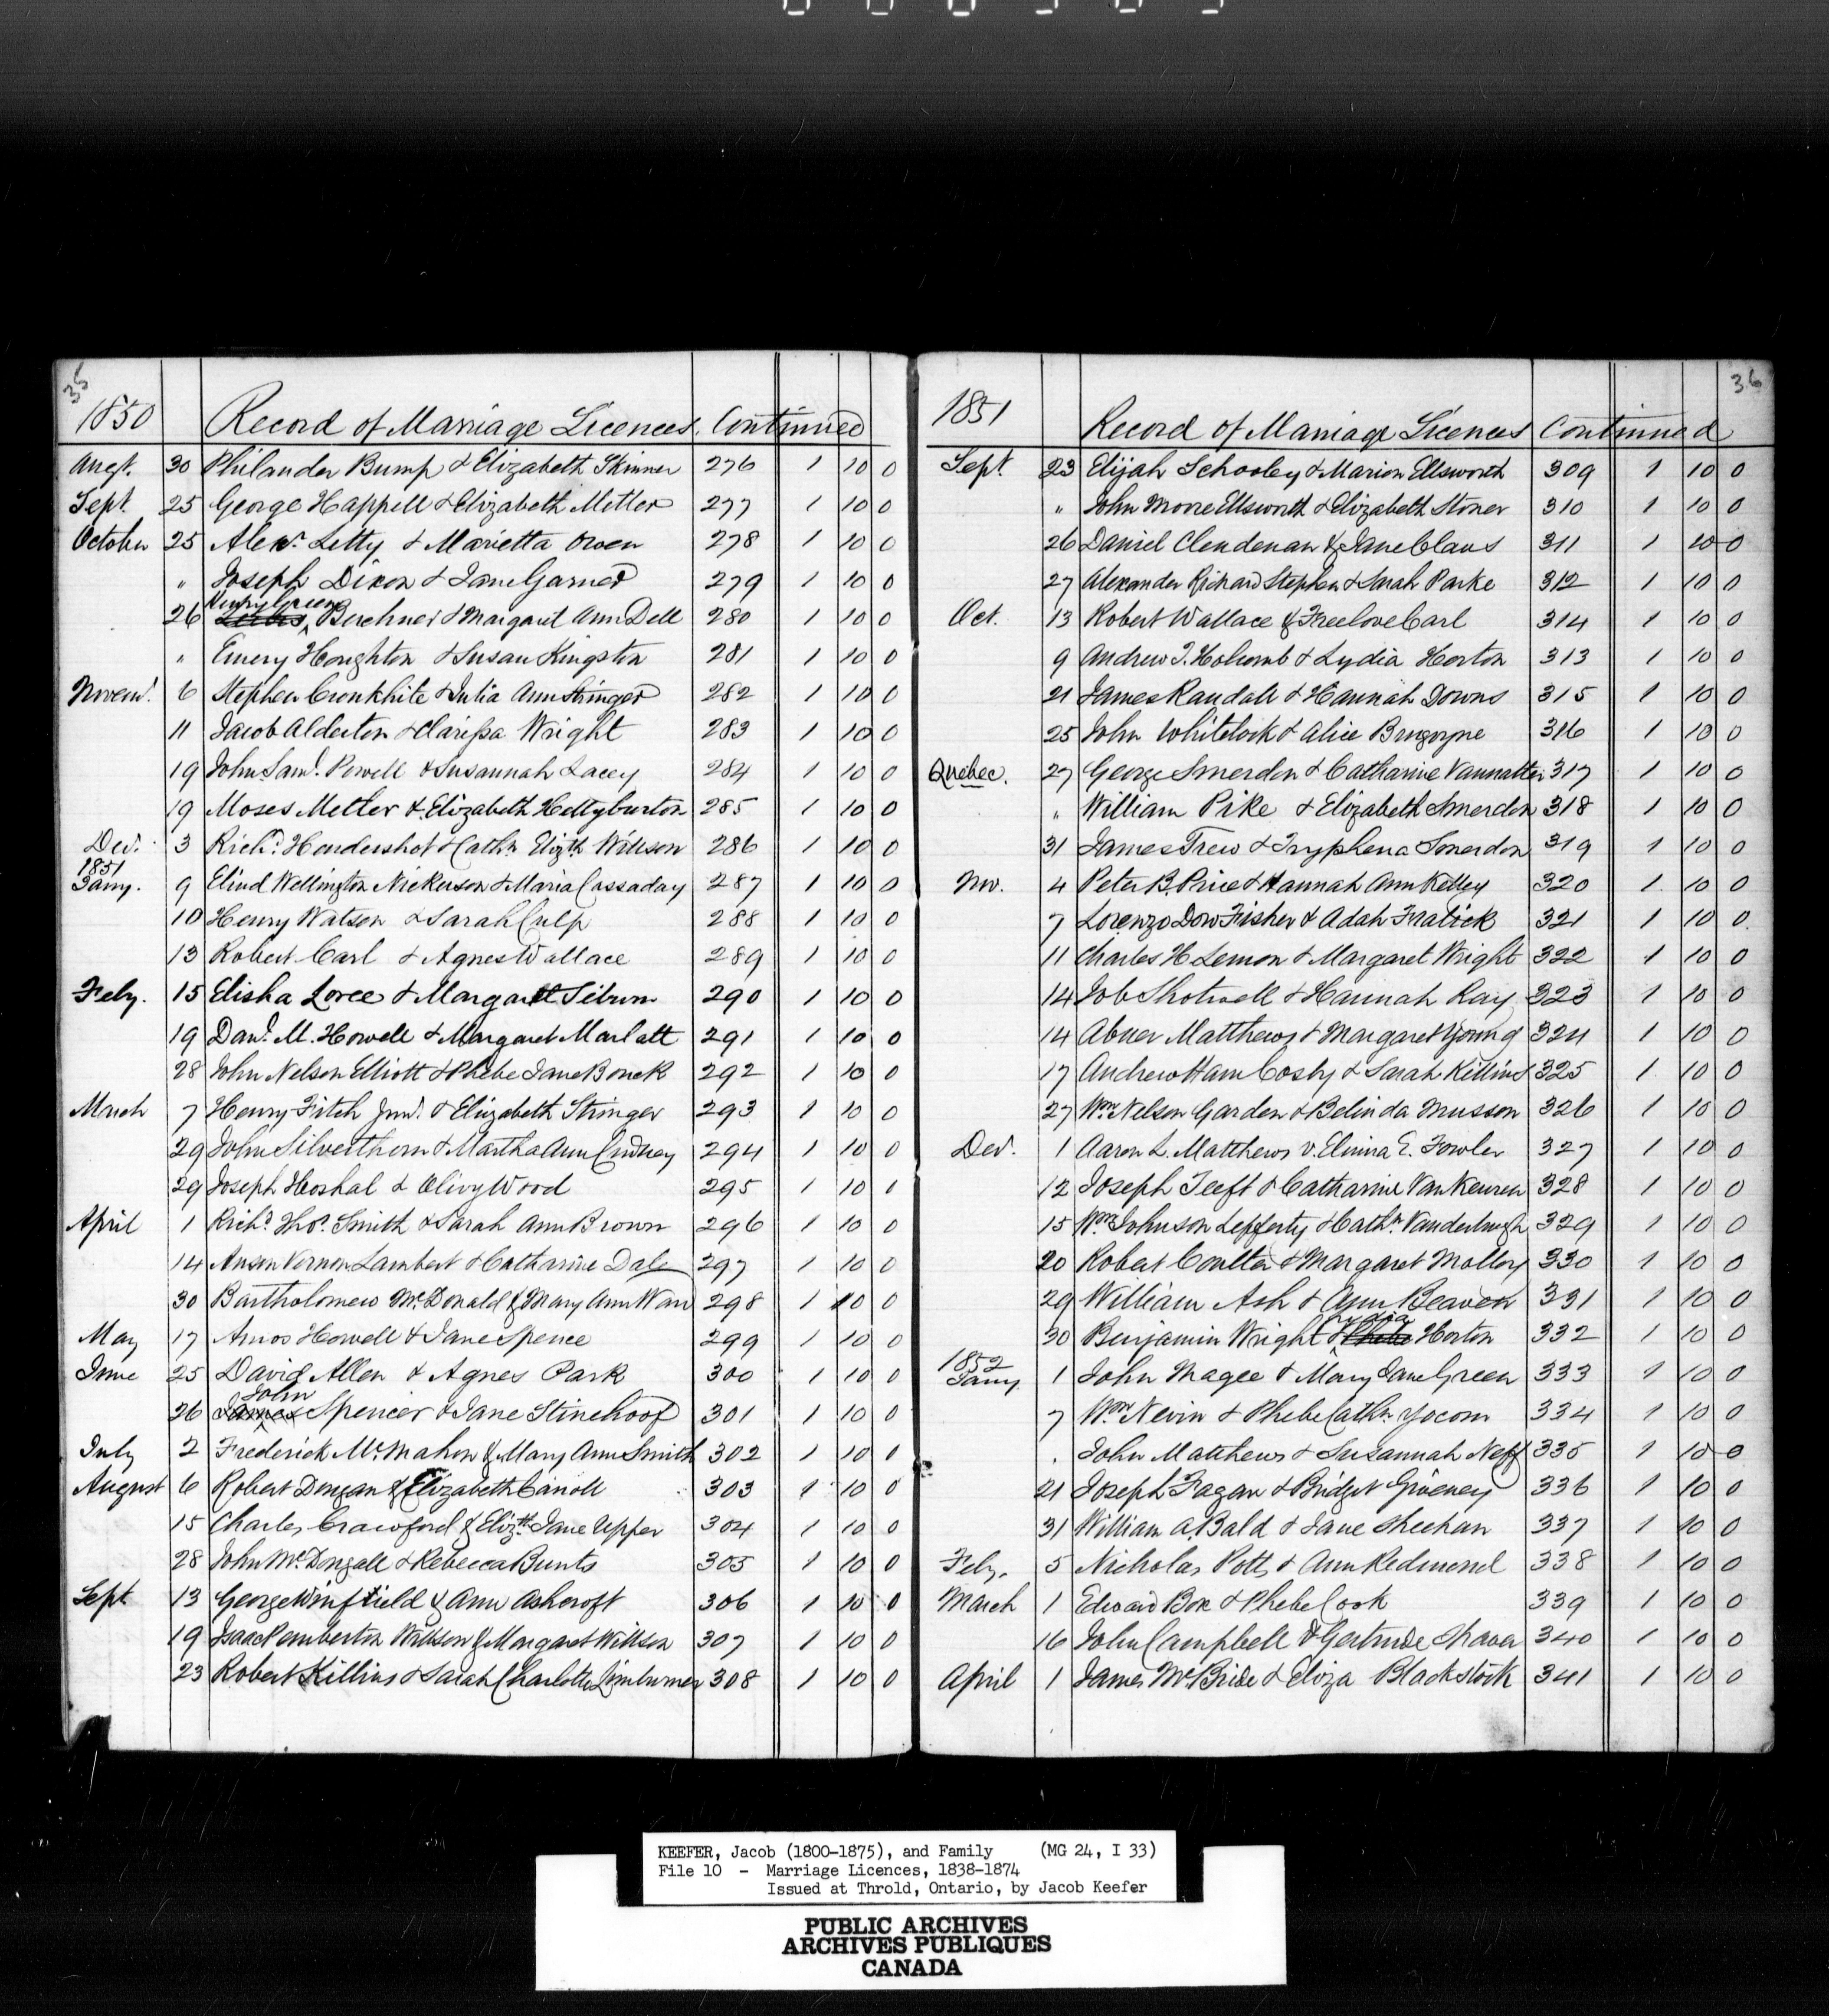 35
1850 Record of Marriage Licences. Continued
Augt. 30 Philander Bump & Elizabeth Skinner 276 1 10 0
Sept. 25 George Happell & Elizabeth Metler 277 1 10 0
October 25 Alexr. Letty & Marietta Owen 278 1 10 0
" Joseph Dixon & Jane Garner 279 1 10 0
Henry Green
26 Berchner & Margaret Ann Dell 280 1 10 0
" Emery Houghton & Susan Kingston 281 1 10 0
Novemr. 6 Stephen Cronkhite & Julia Ann Stringer 282 1 10 0
11 Jacob Alderton & Clarissa Wright 283 1 10 0
19 John Saml. Powell & Susannah Lacey 284 1 10 0
19 Moses Metler & Elizabeth Hettyburton 285 1 10 0
Decr. 3 Richd. Hendershot & Cathn. Elizth Willson 286 1 10 0
1851
Jany. 9 Eliud Wellington Nickerson & Maria Cassaday 287 1 10 0
10 Henry Watson & Sarah Culp 288 1 10 0
13 Robert Carl & Agnes Wallace 289 1 10 0
Feby. 15 Elisha Loree & Margaret 290 1 10 0
19 Danl. M. Howell & Margaret Marlatt 291 1 10 0
28 John Nelson Elliott & Phebe Jane Bouck 292 1 10 0
March 7 Henry Fitch Junr. & Elizabeth Stringer 293 1 10 0
29 John Silverthorn & Martha Ann Cudney 294 1 10 0
29 Joseph Hoshal & Olivy Wood 295 1 10 0
April 1 Richd. Thos. Smith & Sarah Ann Brown 296 1 10 0
14 Anson Vernon Lambert & Catharine Dale 297 1 10 0
30 Bartholomew McDonald & Mary Ann Wan 298 1 10 0
May 17 Amos Howell & Jane Spence 299 1 10 0
June 25 David Allen & Agnes Park 300 1 10 0
John
26 James Spencer & Jane Stinehoof 301 1 10 0
July 2 Frederick McMahon & Mary Ann Smith 302 1 10 0
August 6 Robert Dengan & Elizabeth Carroll 303 1 10 0
15 Charles Crawford & Elizth. Jane Upper 304 1 10 0
28 John McDougall & Rebecca Bunts 305 1 10 0
Sept 13 George Winfield & Ann Ashcroft 306 1 10 0
19 Isaac Pemberton Willson & Margaret Willson 307 1 10 0
23 Robert Killins & Sarah Charlotte Limburner 308 1 10 0
36
1851 Record of Marriage Licences Continued
Sept. 23 Elijah Schooley & Marion Ellsworth 309 1 10 0
" John Moore Ellsworth & Elizabeth Stoner 310 1 10 0
26 Daniel Clendenan & Jane Claus 311 1 10 0
27 Alexander Richard Stephen & Sarah Parke 312 1 10 0
Oct. 13 Robert Wallace & Freelove Carl 314 1 10 0
9 Andrew J. Holcomb & Lydia Horton 313 1 10 0
21 James Randall & Hannah Downs 315 1 10 0
25 John Whitelock & Alice Burgoyne 316 1 10 0
Quebec. 27 George Smerdon & Catharine Vannatter 317 1 10 0
" William Pike & Elizabeth Smerdon 318 1 10 0
31 James Trew & Tryphena Smerdon 319 1 10 0
Nov. 4 Peter B. Price & Hannah Ann Kelley 320 1 10 0
7 Lorenzo Dow Fisher & Adah Fralick 321 1 10 0
11 Charles H Lemon & Margaret Wright 322 1 10 0
14 Job Shotwell & Hannah Ray 323 1 10 0
14 Abner Matthews & Margaret Young 324 1 10 0
17 Andrew Ham Cosby & Sarah Killins 325 1 10 0
27 Wm. Nelson Garden & Belinda Musson 326 1 10 0
Decr. 1 Aaron L. Matthews v. Elmira E. Fowler 327 1 10 0
12 Joseph Teeft & Catharine VanKeuren 328 1 10 0
15 Wm Johnson Lefferty & Cathn. Vanderburgh 329 1 10 0
20 Robert Coulter & Margaret Mallory 330 1 10 0
29 William Ash & Ann Beaven 331 1 10 0
Lydia
30 Benjamin Wright & Phebe Horton 332 1 10 0
1852
Jany 1 John Magee & Mary Jane Green 333 1 10 0
7 Wm Nevin & Phebe Cathn. Yocom 334 1 10 0
. John Matthews & Susannah Neff 335 1 10 0
21 Joseph Fagan & Bridget Griveney 336 1 10 0
31 William A. Bald & Jane Sheehan 337 1 10 0
Feby. 5 Nicholas Potts & Ann Redmond 338 1 10 0
March 1 Edward Box & Phebe Cook 339 1 10 0
16 John Campbell & Gertrude Shaver 340 1 10 0
April 1 James McBride & Eliza Blackstock 341 1 10 0
KEEFER, Jacob (1800-1875), and Family (MG 24, I 33)
File 10 - Marriage Licences, 1838-1874
Issued at Throld, Ontario, by Jacob Keefer
PUBLIC ARCHIVES
ARCHIVES PUBLIQUES
CANADA